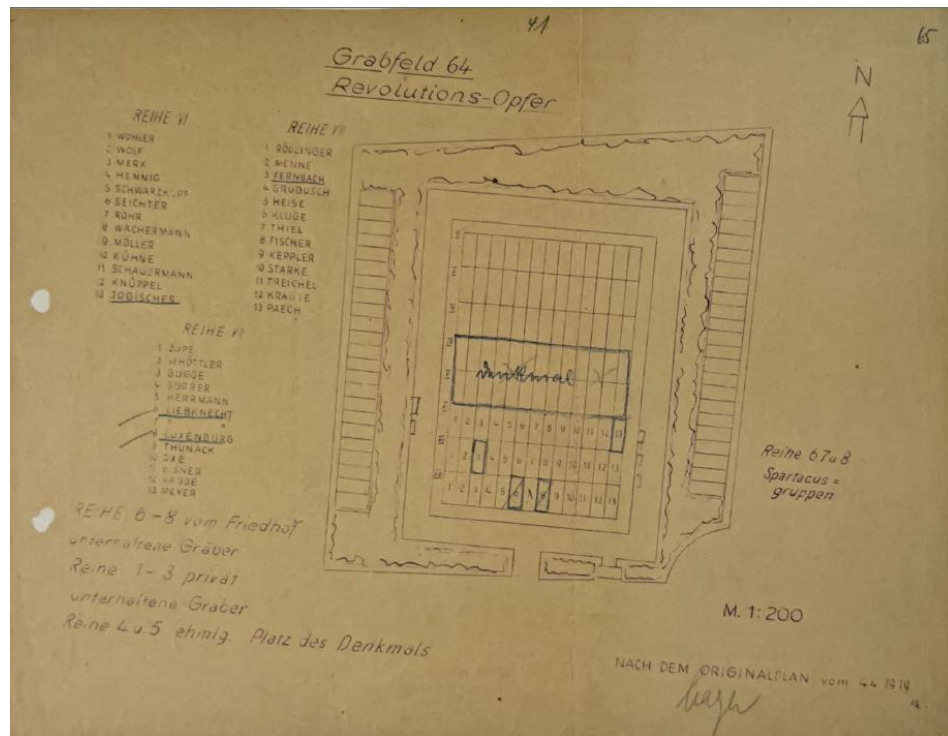 41
65
Grabfeld 64
Revolutions-Opfer
N
REIHE VI
1 WÖHLER
2 WOLF
3 MERX
4 HENNIG
5 SCHWARZKOPF
6 SEICHTER
7 ROHR
8 WACHERMANN
9 MÖLLER
10 KÜHNE
11 SCHAUERMANN
12 KNÜPPEL
13 JOGISCHES
REIHE VII
1 RÖDLINGER
2 MENNE
3 FERNBACH
4 GRUBUSCH
5 HEISE
6 KLUGE
7 THIEL
8 FISCHER
9 KEPPLER
10 STARKE
11 TREICHEL
12 KRAUSE
13 PAECH
REIHE
1
2 SCHÖTTLER
3 BUGGE
4
5 HERRMANN
6 LIEBKNECHT
7 "
8 LUXENBURG
9 THUNACK
10
11
12
13 MEYER
Denkmal
1 2 3 4 5 6 7 8 9 10 11 12 13
1 2 3 4 5 6 7 8 9 10 11 12 13
1 2 3 4 5 6 7 8 9 10 11 12 13
Reihe 6.7 u 8
Spartacus =
gruppen
REIHE 6-8 vom Friedhof
unterhaltene Gräber
Reihe 1-3 privat
unterhaltene Gräber
Reihe 4 u. 5 ehmlg. Platz des Denkmals
M. 1:200
NACH DEM ORIGINALPLAN vom 4.4.1919